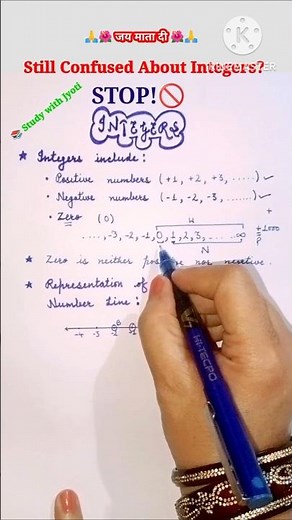 🙏🌺 जय माता दी 🌺🙏
Still Confused About Integers?
STOP!🚫
📚 Study with Jyoti
INTEGERS
★ Integers include :
• Positive numbers (+1, +2, +3, ......) ✓
• Negative numbers (-1, -2, -3, ......) ✓
• Zero (0)
W
....., -3, -2, -1, 0, 1, 2, 3, ..... ∞
N
+
+1000
★ Zero is neither nor negetive.
★ Representation of
Number Line :
-4 -3 -2
B
HI-TECPO